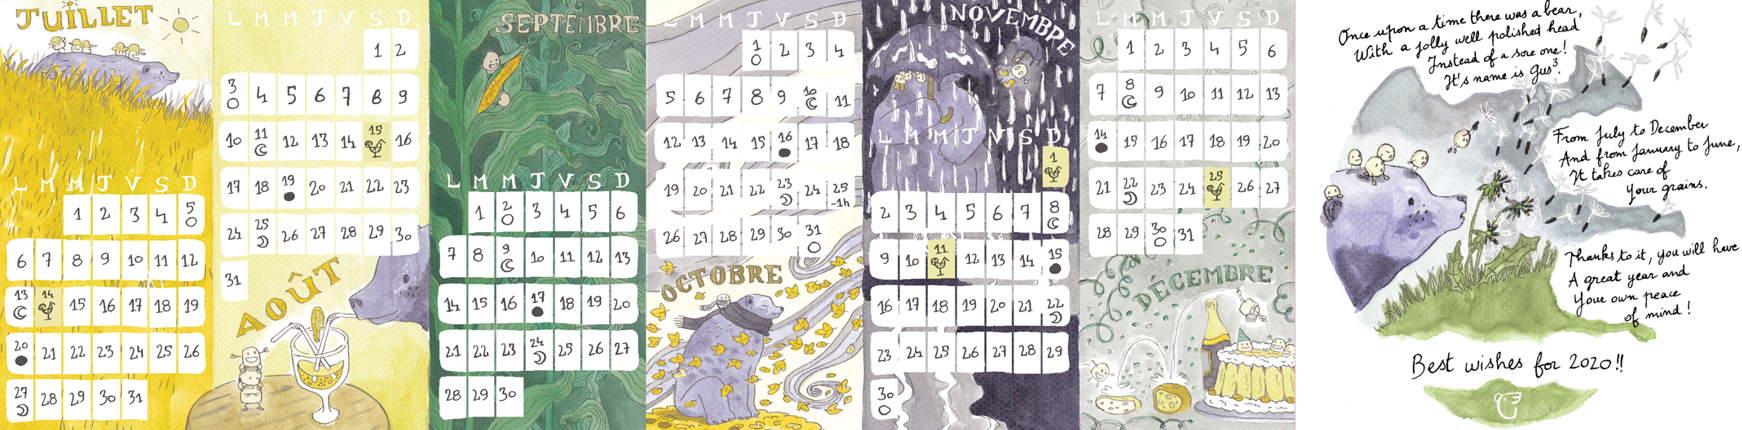 JUILLET
L M M J V S D
1 2 3 4 5
6 7 8 9 10 11 12
13 14 15 16 17 18 19
20 21 22 23 24 25 26
27 28 29 30 31
L M M J V S D
1 2
3 4 5 6 7 8 9
10 11 12 13 14 15 16
17 18 19 20 21 22 23
24 25 26 27 28 29 30
31
AOÛT
SEPTEMBRE
L M M J V S D
1 2 3 4 5 6
7 8 9 10 11 12 13
14 15 16 17 18 19 20
21 22 23 24 25 26 27
28 29 30
L M M J V S D
1 2 3 4
5 6 7 8 9 10 11
12 13 14 15 16 17 18
19 20 21 22 23 24 25
-1h
26 27 28 29 30 31
OCTOBRE
NOVEMBRE
L M M J V S D
1
2 3 4 5 6 7 8
9 10 11 12 13 14 15
16 17 18 19 20 21 22
23 24 25 26 27 28 29
30
L M M J V S D
1 2 3 4 5 6
7 8 9 10 11 12 13
14 15 16 17 18 19 20
21 22 23 24 25 26 27
28 29 30 31
DÉCEMBRE
Once upon a time there was a bear,
With a jolly well polished head
Instead of a sore one!
It's name is Gus³.
From July to December
And from January to June,
It takes care of
Your grains.
Thanks to it, you will have
A great year and
Your own peace
of mind!
Best wishes for 2020!!